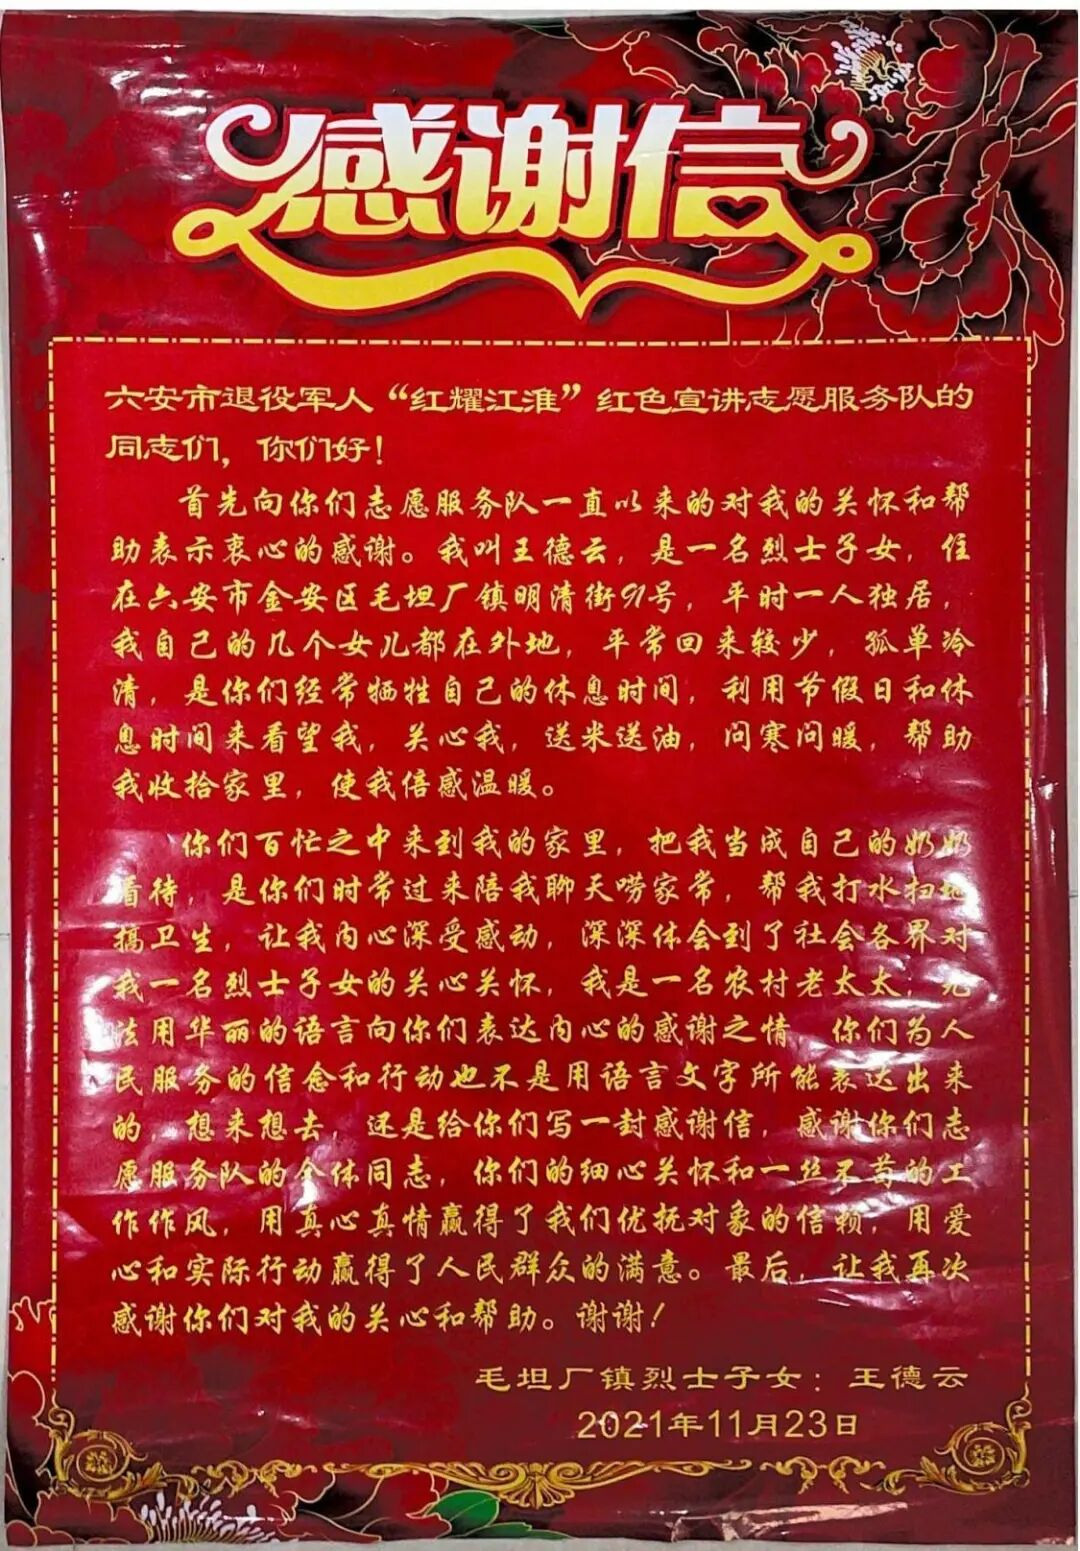 感谢信
六安市退役军人“红耀江淮”红色宣讲志愿服务队的
同志们，你们好！
首先向你们志愿服务队一直以来的对我的关怀和帮
助表示衷心的感谢。我叫王德云，是一名烈士子女，住
在六安市金安区毛坦厂镇明清街91号，平时一人独居，
我自己的几个女儿都在外地，平常回来较少，孤单冷
清，是你们经常牺牲自己的休息时间，利用节假日和休
息时间来看望我，关心我，送米送油，问寒问暖，帮助
我收拾家里，使我倍感温暖。
你们百忙之中来到我的家里，把我当成自己的奶奶
看待，是你们时常过来陪我聊天唠家常，帮我打水扫地
搞卫生，让我内心深受感动，深深体会到了社会各界对
我一名烈士子女的关心关怀，我是一名农村老太太，无
法用华丽的语言向你们表达内心的感谢之情 你们为人
民服务的信念和行动也不是用语言文字所能表达出来
的，想来想去，还是给你们写一封感谢信，感谢你们志
愿服务队的全体同志，你们的细心关怀和一丝不苟的工
作作风，用真心真情赢得了我们优抚对象的信赖，用爱
心和实际行动赢得了人民群众的满意。最后，让我再次
感谢你们对我的关心和帮助。谢谢！
毛坦厂镇烈士子女：王德云
2021年11月23日